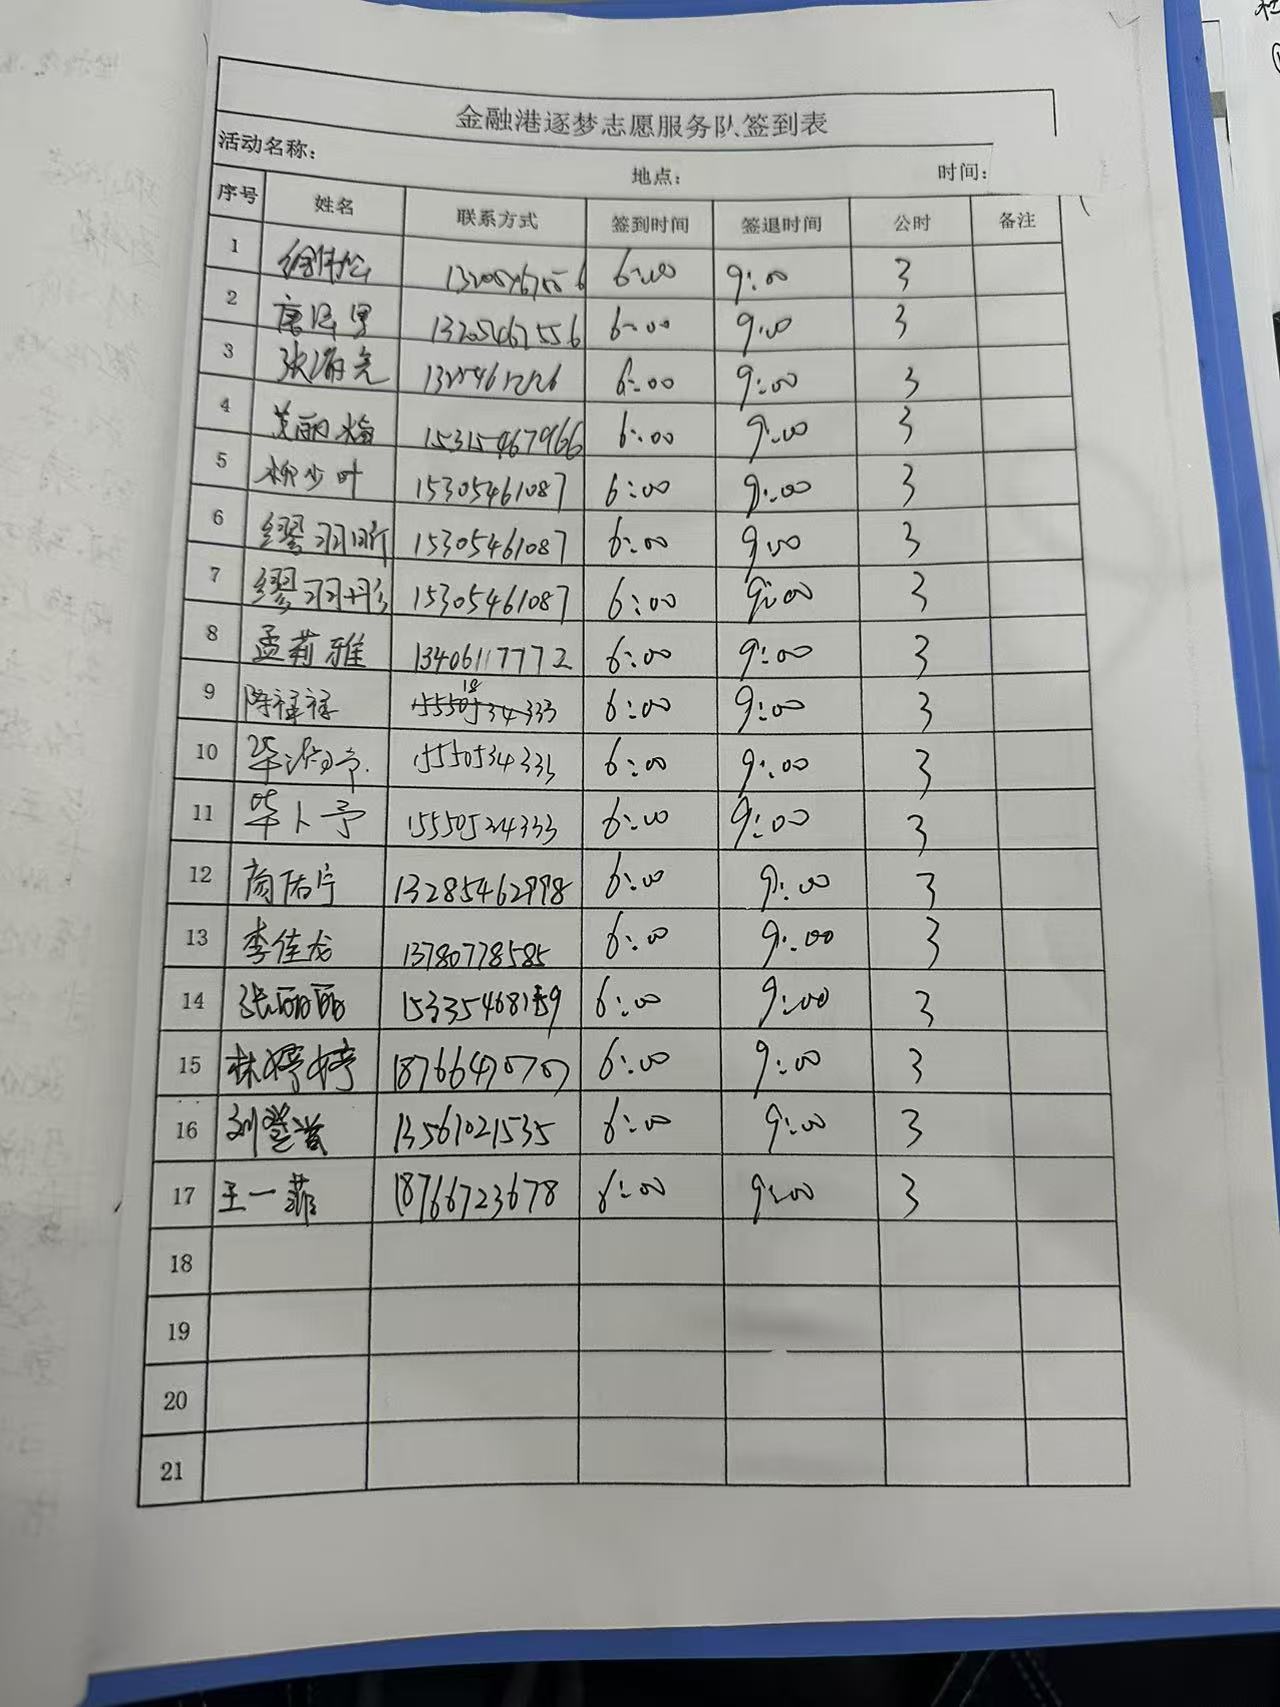 金融港逐梦志愿服务队签到表
活动名称： 地点： 时间：
序号 姓名 联系方式 签到时间 签退时间 公时 备注
1 6:00 9:00 3
2 13205467556 6:00 9:00 3
3 6:00 9:00 3
4 15315467966 6:00 9:00 3
5 柳少叶 15305461087 6:00 9:00 3
6 缪羽昕 15305461087 6:00 9:00 3
7 缪羽彤 15305461087 6:00 9:00 3
8 孟莉雅 13406117772 6:00 9:00 3
9 6:00 9:00 3
10 15550534333 6:00 9:00 3
11 毕卜予 15550534333 6:00 9:00 3
12 13285462998 6:00 9:00 3
13 李佳龙 13780778585 6:00 9:00 3
14 张丽丽 6:00 9:00 3
15 林婷婷 18766490707 6:00 9:00 3
16 13561021535 6:00 9:00 3
17 王一菲 18766723678 6:00 9:00 3
18
19
20
21